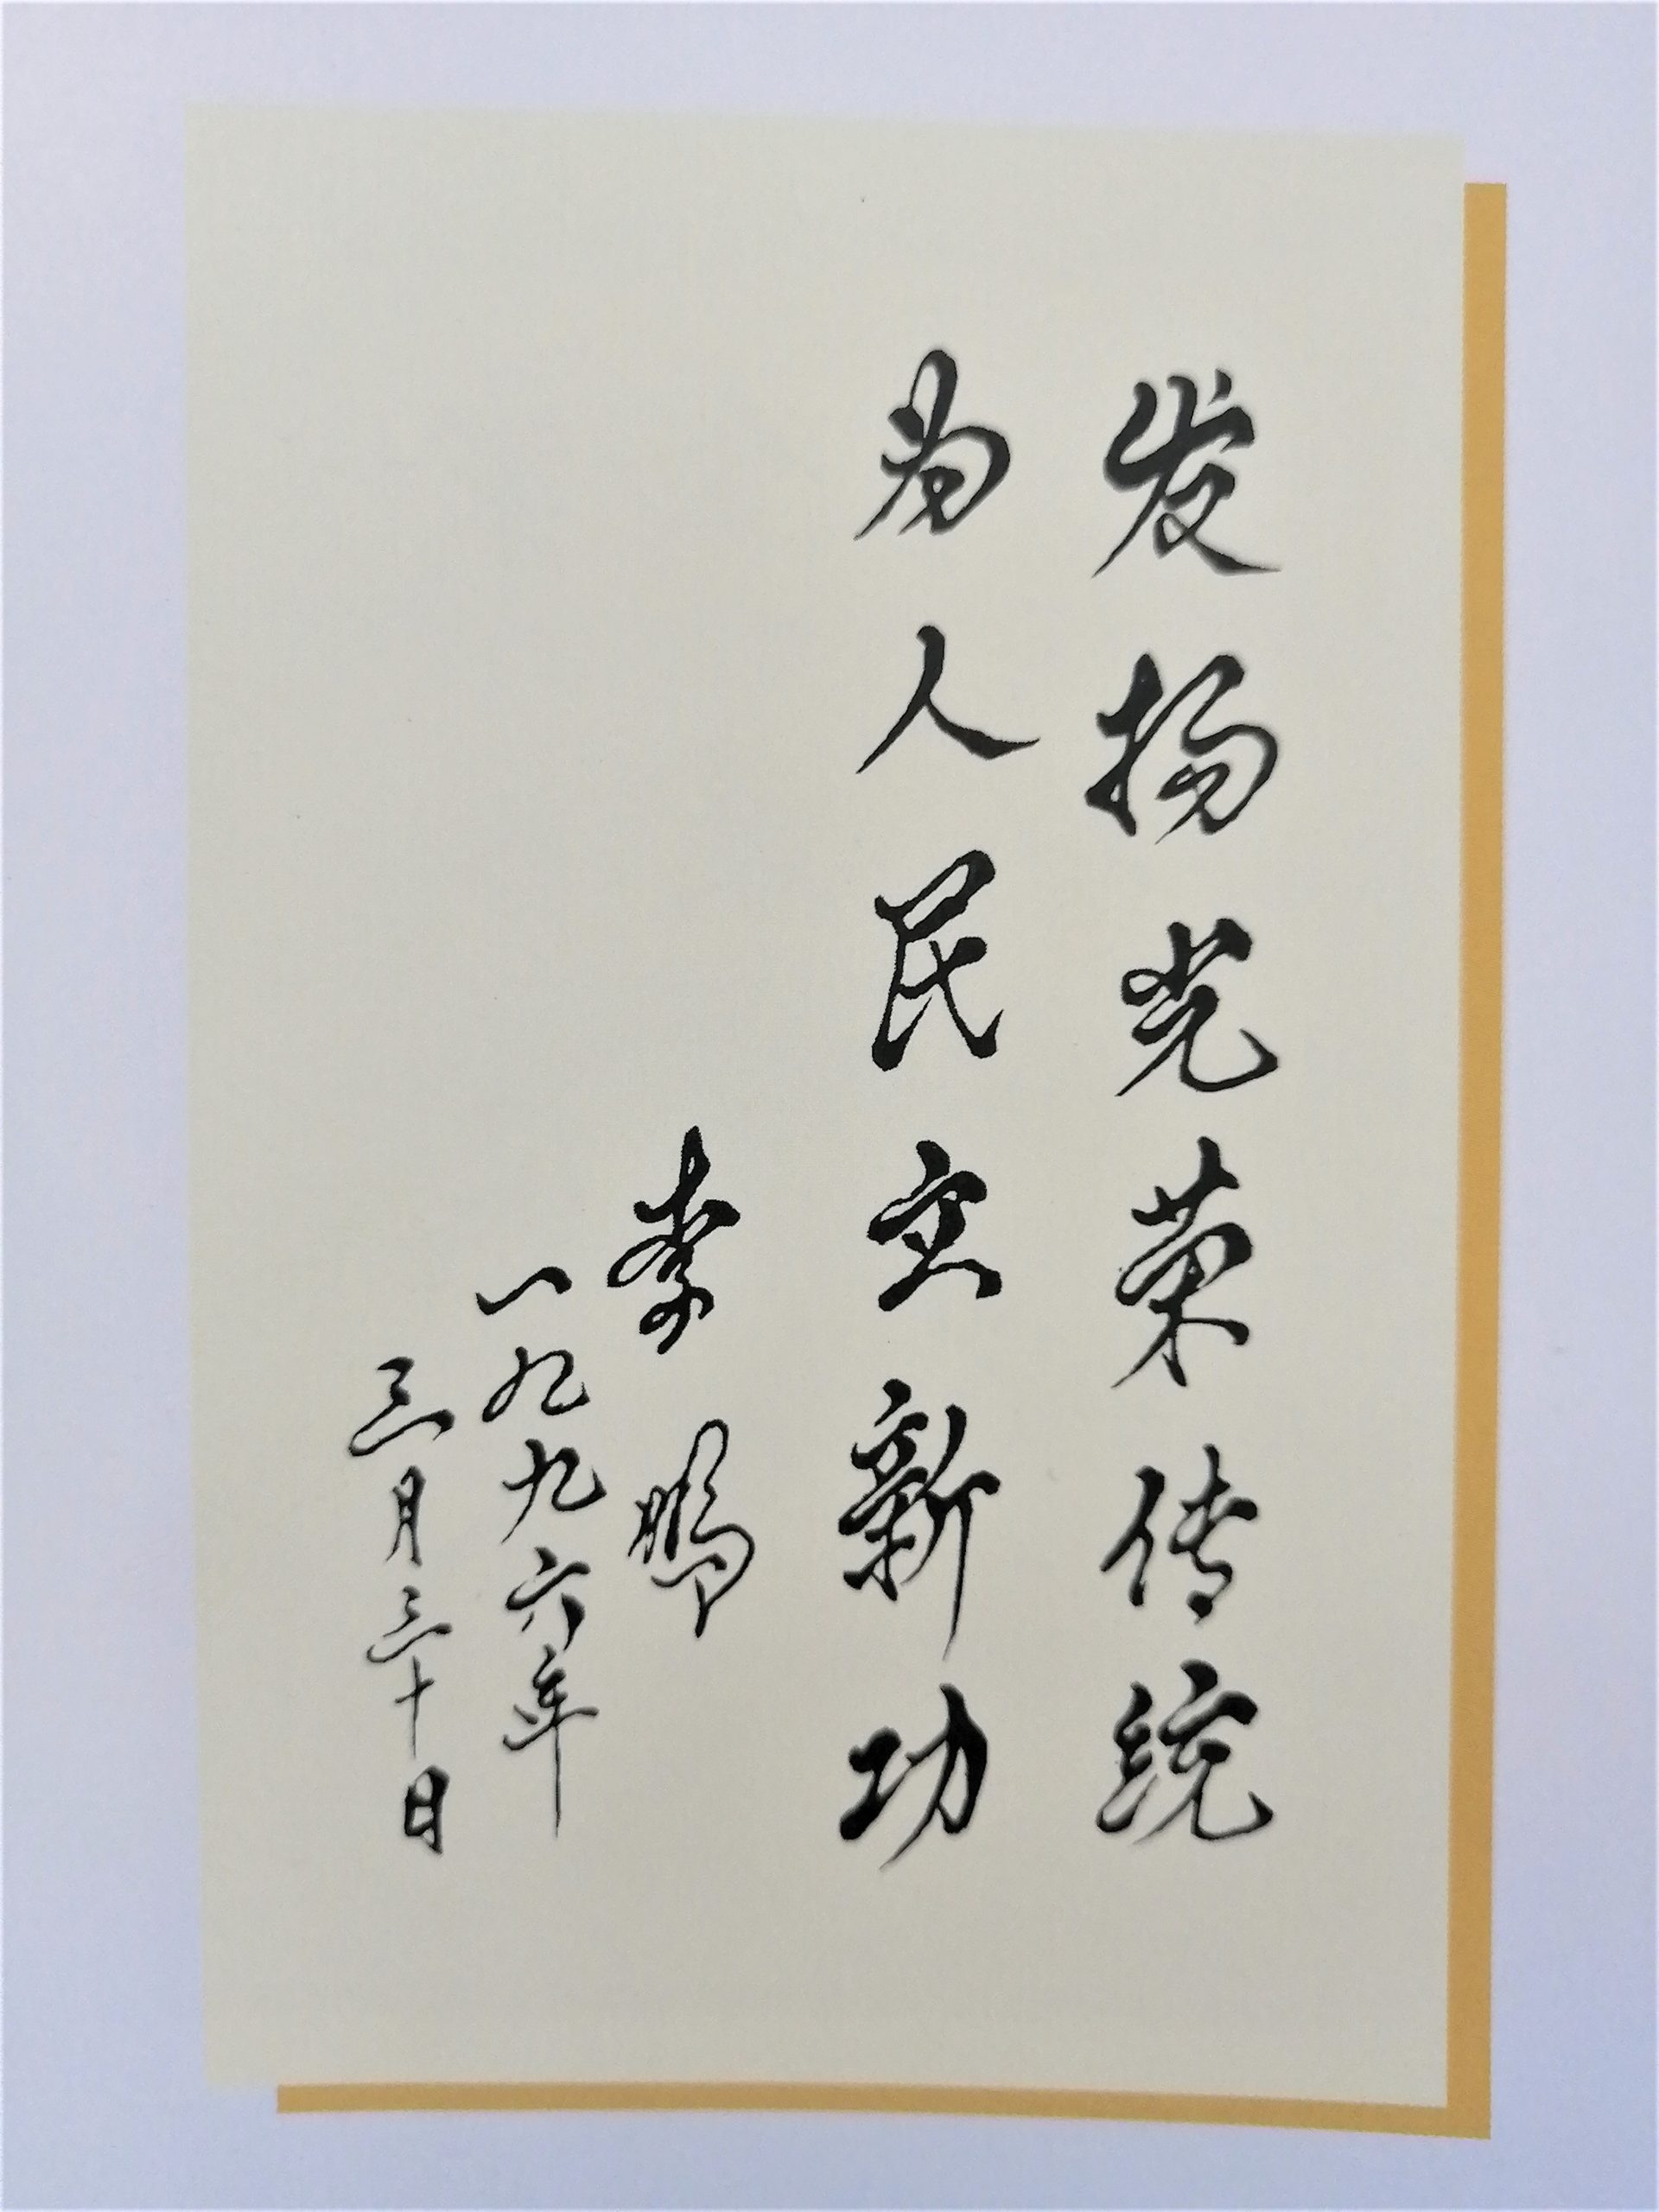 发扬光荣传统
为人民立新功
李鹏
一九九六年
三月三十日